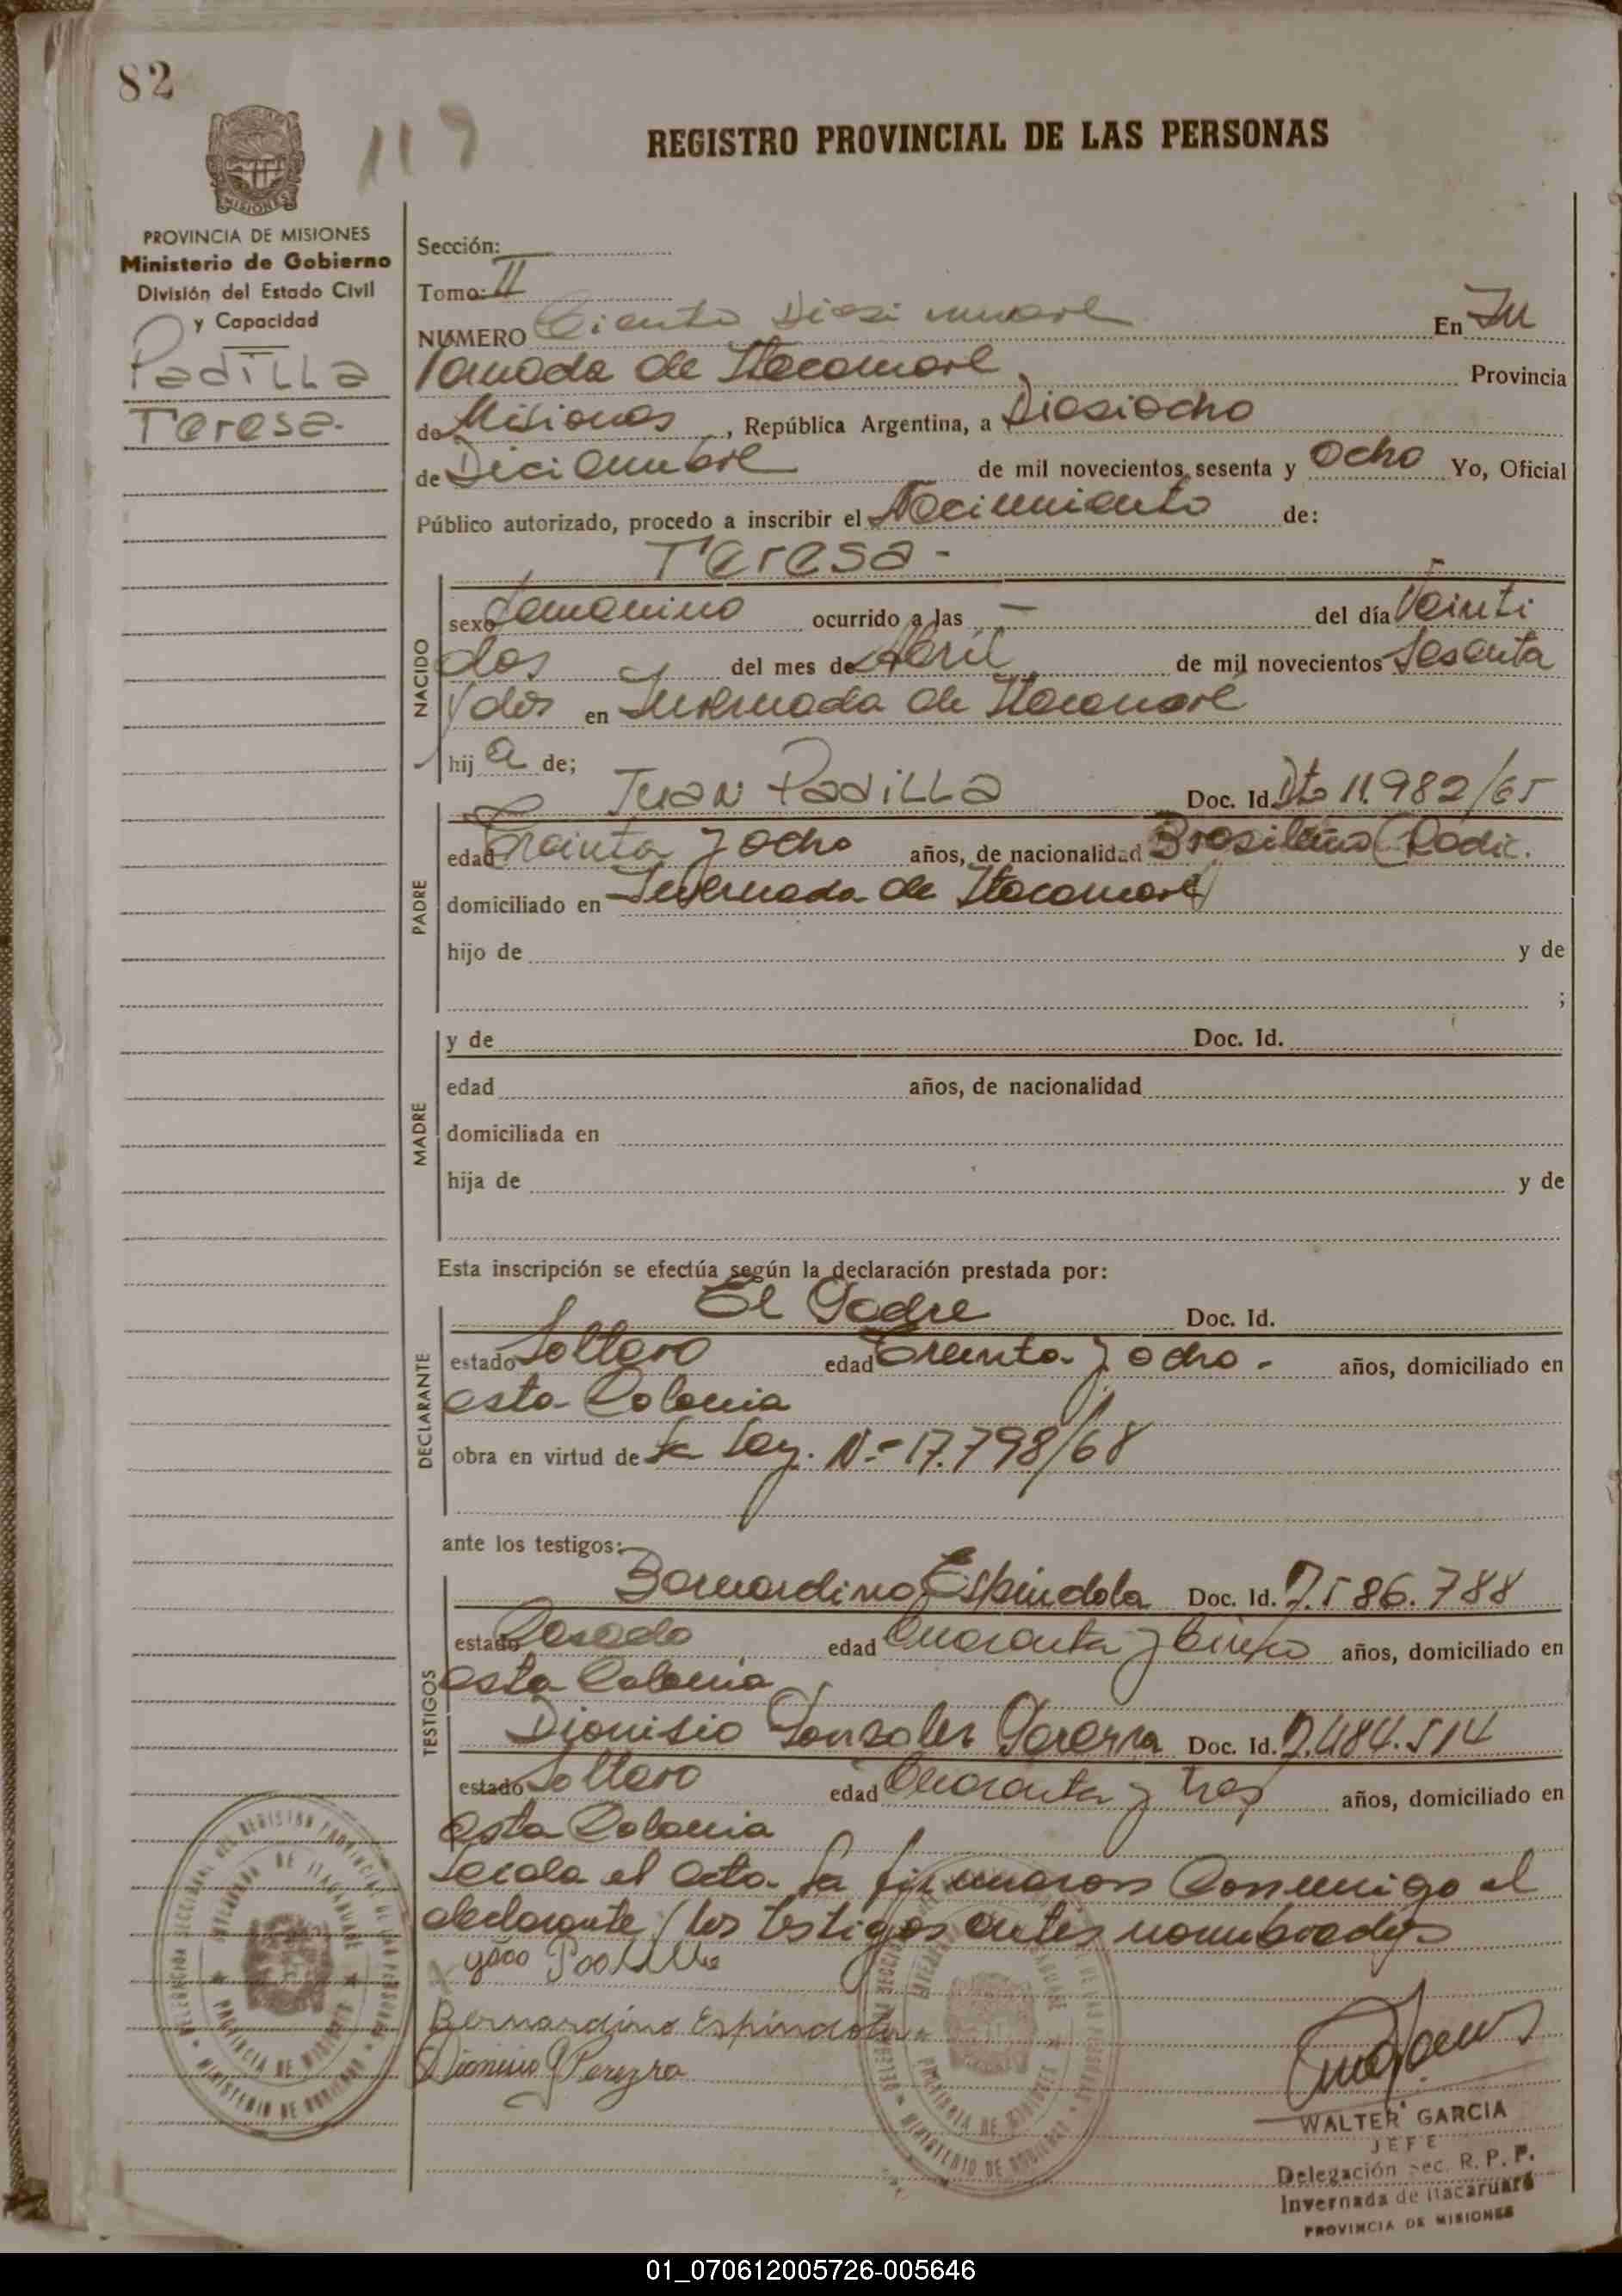 82
119
REGISTRO PROVINCIAL DE LAS PERSONAS
MISIONES
PROVINCIA DE MISIONES
Ministerio de Gobierno
División del Estado Civil
y Capacidad
Padilla
Teresa.
Sección:
Tomo: II
NÚMERO Ciento Diesi nueve En In
vernada de Itacaruaré Provincia
de Misiones, República Argentina, a Diesiocho
de Diciembre de mil novecientos sesenta y ocho Yo, Oficial
Público autorizado, procedo a inscribir el Nacimiento de:
Teresa -
NACIDO
sexo femenino ocurrido a las — del día Veinti
dos del mes de Abril de mil novecientos sesenta
y dos en Invernada de Itacaruaré
hija de;
Juan Padilla Doc. Id. Dto 11.982/65
PADRE
edad Treinta y ocho años, de nacionalidad Brasileño (Radic.
domiciliado en Invernada de Itacaruaré)
hijo de y de
;
MADRE
y de Doc. Id.
edad años, de nacionalidad
domiciliada en
hija de y de
Esta inscripción se efectúa según la declaración prestada por:
El Padre Doc. Id.
DECLARANTE
estado Soltero edad Treinta y ocho - años, domiciliado en
esta Colonia
obra en virtud de la Ley. Nº 17.798/68
ante los testigos:
TESTIGOS
Bernardino Espindola Doc. Id. 7.586.788
estado Casado edad Cuarenta y Cinco años, domiciliado en
esta Colonia
Dionisio Gonsales Pereyra Doc. Id. 7.484.514
estado Soltero edad Cuarenta y tres años, domiciliado en
esta Colonia
Leida el acta la firmaron Conmigo el
declarante y los testigos antes nombrados
Bernardino Espindola
Dionisio G Pereyra
PROVINCIA DE MISIONES
MINISTERIO DE GOBIERNO
PROVINCIA DE MISIONES
MINISTERIO DE GOBIERNO
WALTER GARCIA
JEFE
Delegación Sec. R. P. P.
Invernada de Itacaruaré
PROVINCIA DE MISIONES
01_070612005726-005646